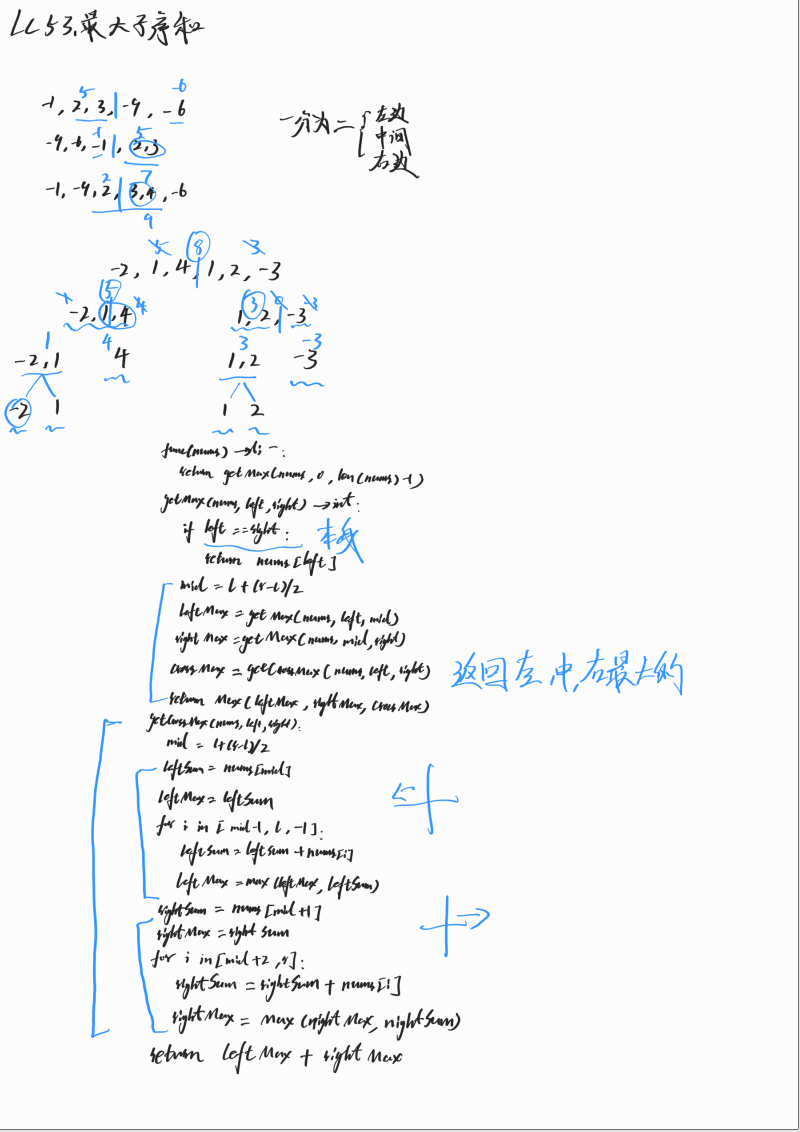 LC53.最大子序和
5 -6
-1, 2, 3, | -9, -6
一分为二 { 左边 中间 右边
-1 5
-9, -6, -1 | , 2,3
2 7
-1, -9, 2, | 3,4, -6
9
5 8 -3
-2, 1, 4, | 1, 2, -3
5 4 3 -3
-2, 1, 4 1, 2, -3
1 4 3 -3
-2, 1 4 1, 2 -3
-2 1 1 2
func(nums) → li -:
return getMax(nums, 0, len(nums)-1)
getMax(nums, left, right) → int:
if left == right: 本身
return nums[left]
mid = l + (r-l)/2
leftMax = getMax(nums, left, mid)
rightMax = getMax(nums, mid, right)
crossMax = getCrossMax(nums, left, right) 返回左,中,右最大的
return Max(leftMax, rightMax, crossMax)
getCrossMax(nums, left, right):
mid = l+(r-l)/2
leftSum = nums[mid]
leftMax = leftSum
for i in [mid-1, l, -1]:
leftSum = leftSum + nums[i]
leftMax = max(leftMax, leftSum)
rightSum = nums[mid+1]
rightMax = rightSum
for i in [mid+2, r]:
rightSum = rightSum + nums[i]
rightMax = max(rightMax, rightSum)
return leftMax + rightMax